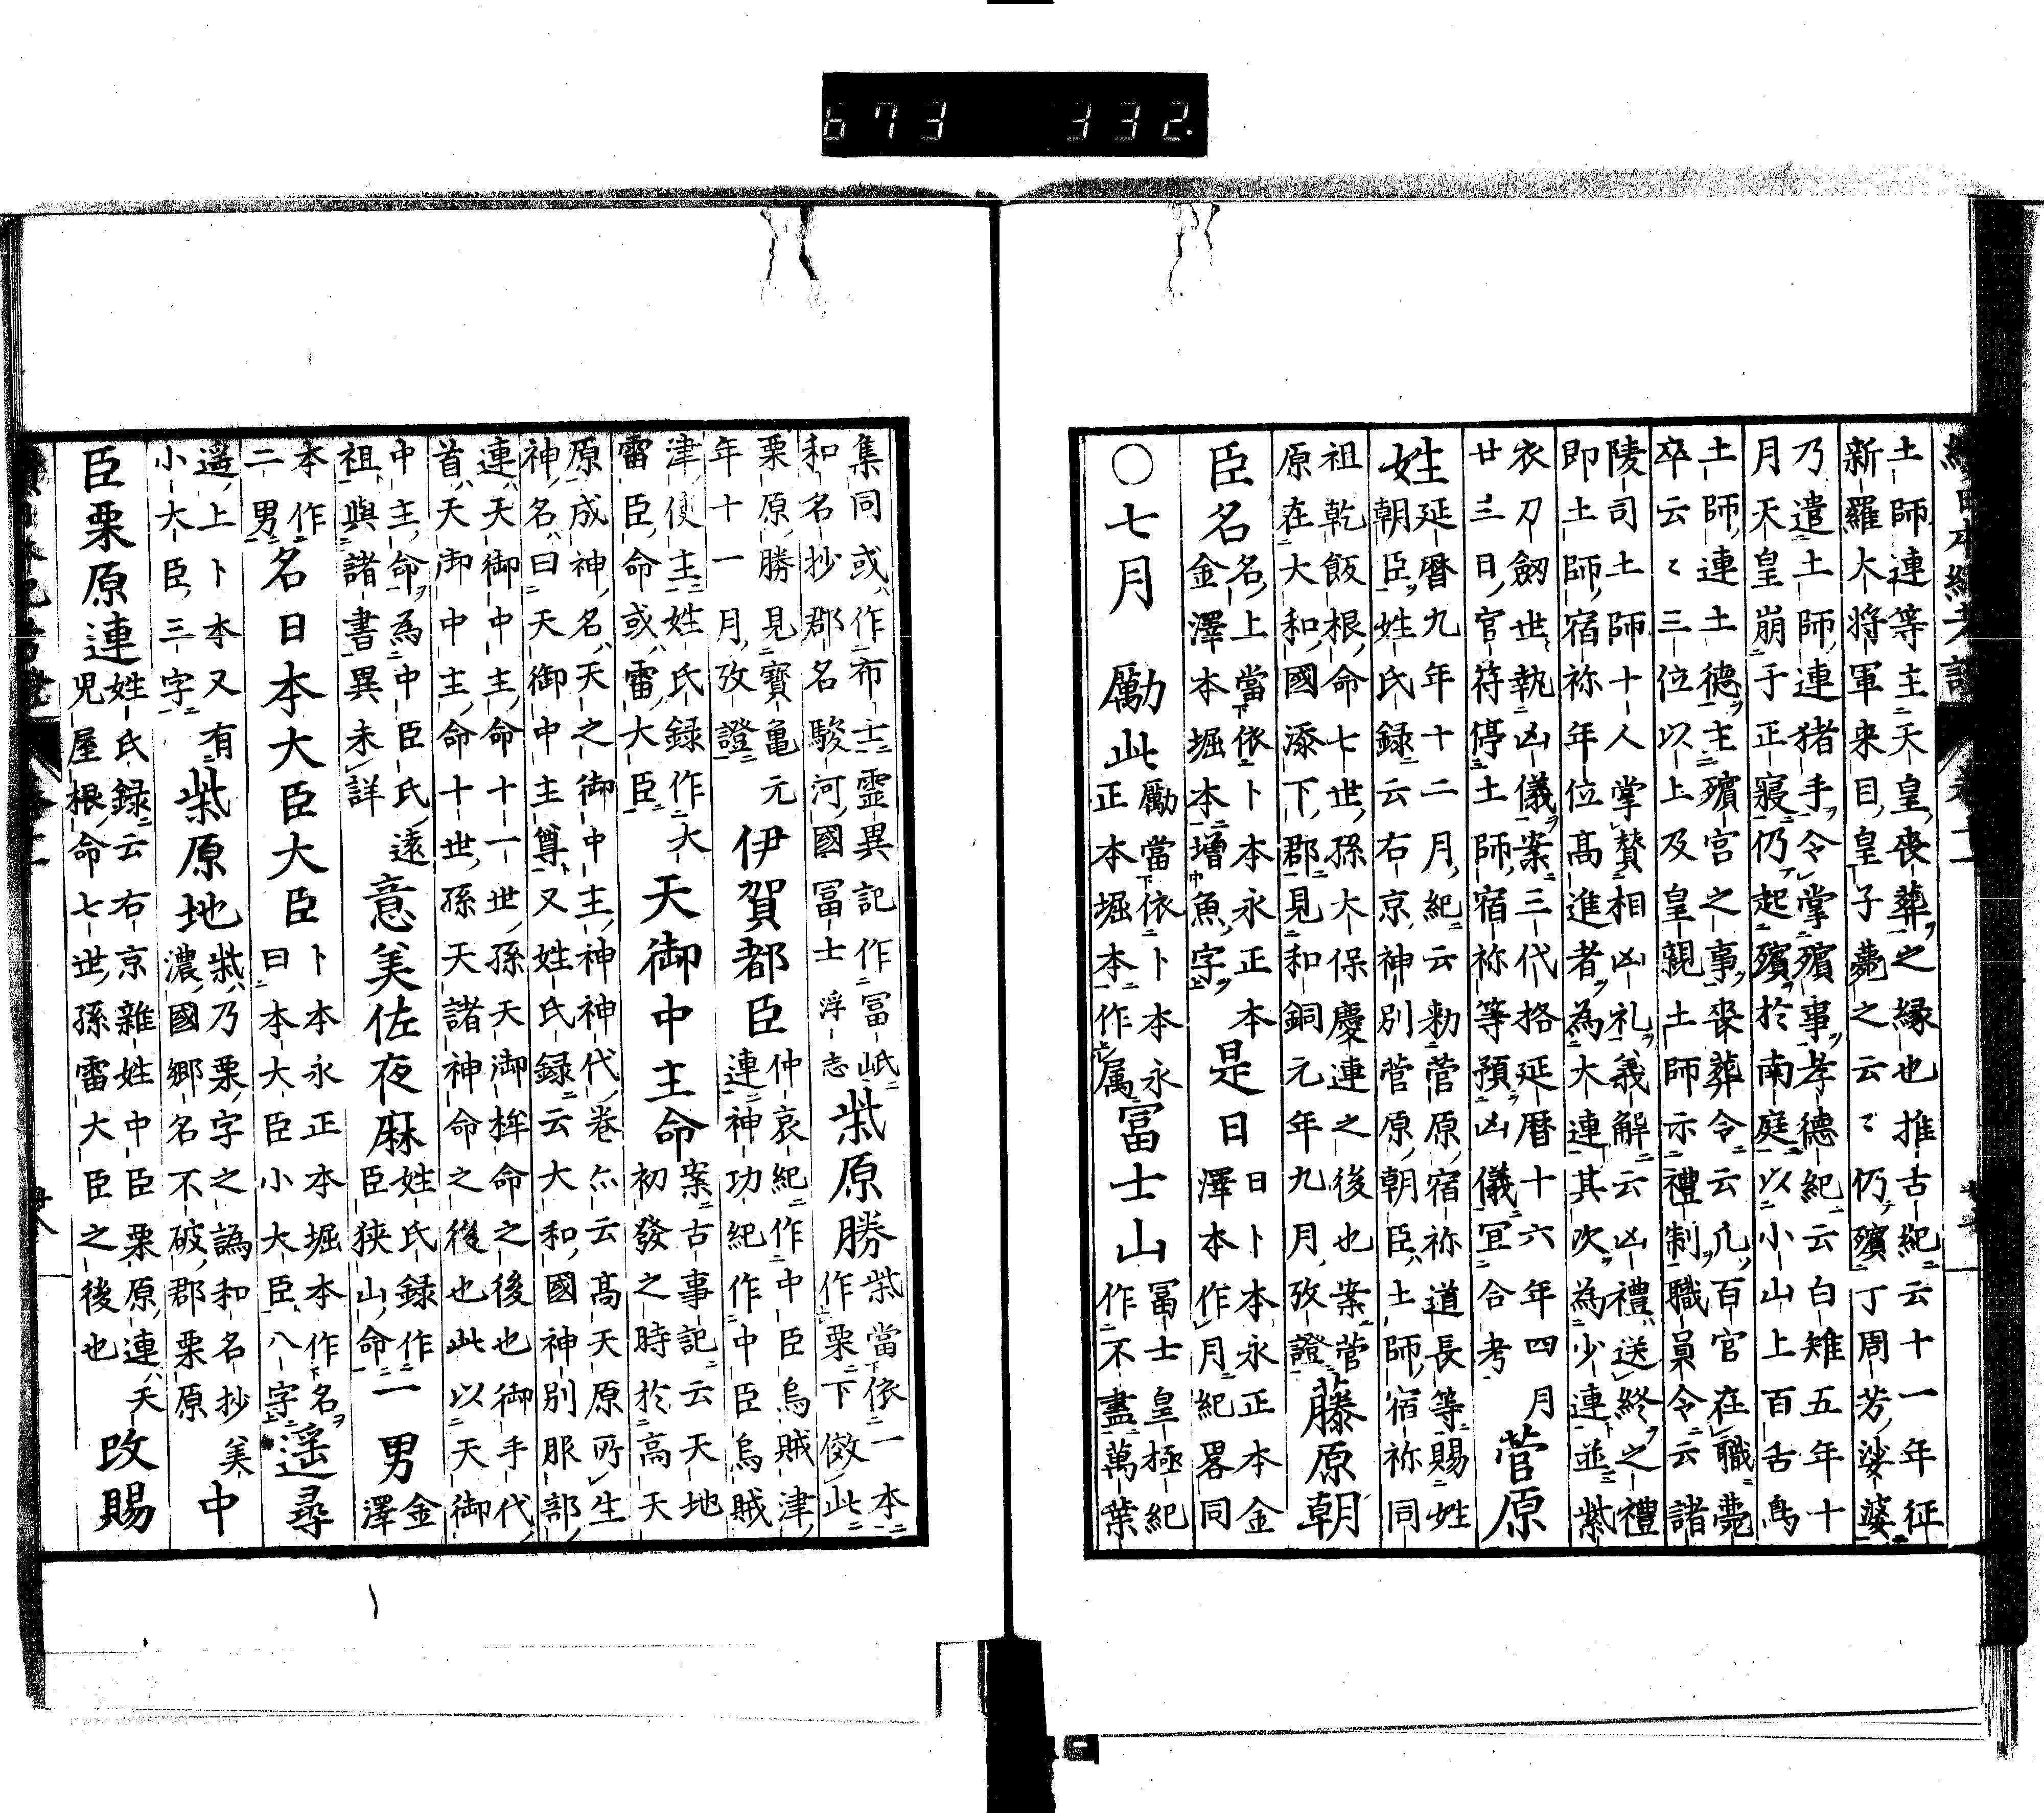 673 332.
土師連等主天皇喪葬之縁也推古紀云十一年征
新羅大將軍来目皇子薨之云〻仍殯丁周芳娑婆
乃遣土師連猪手令掌殯事孝徳紀云白雉五年十
月天皇崩于正寝仍起殯於南庭以小山上百舌鳥
土師連土徳主殯宮之事喪葬令云凡百官在職薨
卒云〻三位以上及皇親土師示禮制職員令云諸
陵司土師十人掌賛相凶礼義解云凶禮送終之禮
即土師宿祢年位高進者為大連其次為少連並紫
衣刀劔世執凶儀案三代格延暦十六年四月
廿三日官符停土師宿祢等預凶儀宜合考
菅原
姓
延暦九年十二月紀云勅菅原宿祢道長等賜姓
朝臣姓氏録云右京神別菅原朝臣土師宿祢同
祖乾飯根命七世孫大保慶連之後也案菅
原在大和國添下郡見和銅元年九月攷證
藤原朝
臣名
名上當依卜本永正本
金澤本堀本増魚字
是日
日卜本永正本金
澤本作月紀畧同
○七月
勵此
勵當依卜本永
正本堀本作属
富士山
冨士皇極紀
作不盡萬葉
集同或作布士霊異記作冨岻
和名抄郡名駿河國冨士浮志
柴原勝
柴當依一本
作栗下傚此
栗原勝見寶亀元
年十一月攷證
伊賀都臣
仲哀紀作中臣烏賊津
連神功紀作中臣烏賊
津使主姓氏録作大
雷臣命或雷大臣
天御中主命
案古事記云天地
初發之時於高天
原成神名天之御中主神神代卷亦云高天原所生
神名曰天御中主尊又姓氏録云大和國神別服部
連天御中主命十一世孫天御桙命之後也御手代
首天御中主命十世孫天諸神命之後也此以天御
中主命為中臣氏遠
祖與諸書異未詳
意美佐夜麻
姓氏録作
臣狭山命
一男
金澤
本作
二男
名日本大臣大臣
卜本永正本堀本作名
曰本大臣小大臣八字
遥尋
遥上卜本又有
小大臣三字
柴原地
柴乃栗字之譌和名抄美
濃國郷名不破郡栗原
中
臣栗原連
姓氏録云右京雜姓中臣栗原連天
児屋根命七世孫雷大臣之後也
改賜